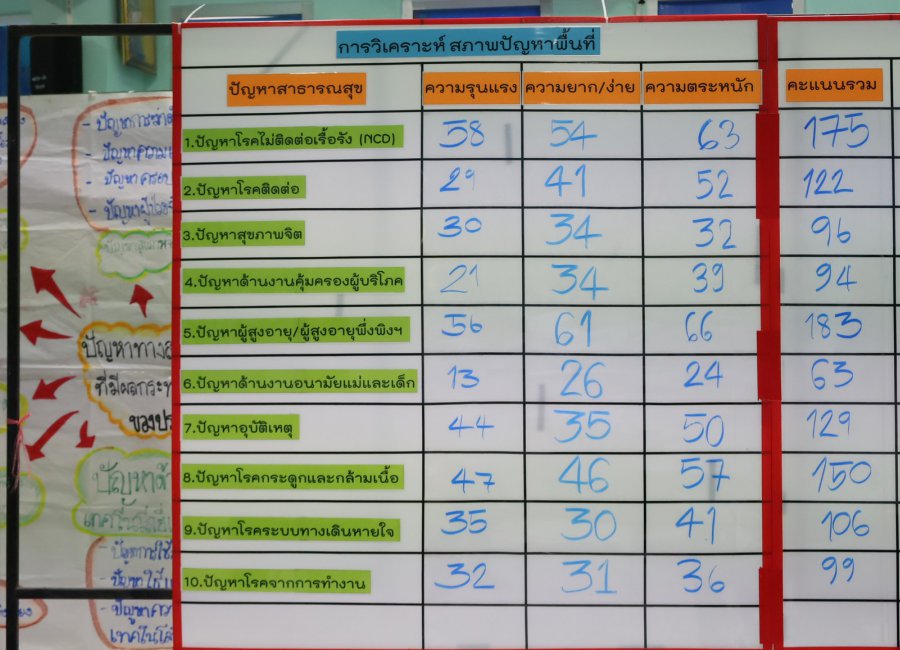 การวิเคราะห์ สภาพปัญหาพื้นที่
ปัญหาสาธารณสุข ความรุนแรง ความยาก/ง่าย ความตระหนัก คะแนนรวม
1.ปัญหาโรคไม่ติดต่อเรื้อรัง (NCD) 58 54 63 175
2.ปัญหาโรคติดต่อ 29 41 52 122
3.ปัญหาสุขภาพจิต 30 34 32 96
4.ปัญหาด้านงานคุ้มครองผู้บริโภค 21 34 39 94
5.ปัญหาผู้สูงอายุ/ผู้สูงอายุพึ่งพิงฯ 56 61 66 183
6.ปัญหาด้านงานอนามัยแม่และเด็ก 13 26 24 63
7.ปัญหาอุบัติเหตุ 44 35 50 129
8.ปัญหาโรคกระดูกและกล้ามเนื้อ 47 46 57 150
9.ปัญหาโรคระบบทางเดินหายใจ 35 30 41 106
10.ปัญหาโรคจากการทำงาน 32 31 36 99
ปัญหาทาง
ที่มีผลกระท
ของปร
ปัญหาด้
- ปัญหาการใช้
- ปัญหาใช้
- ปัญหาคว